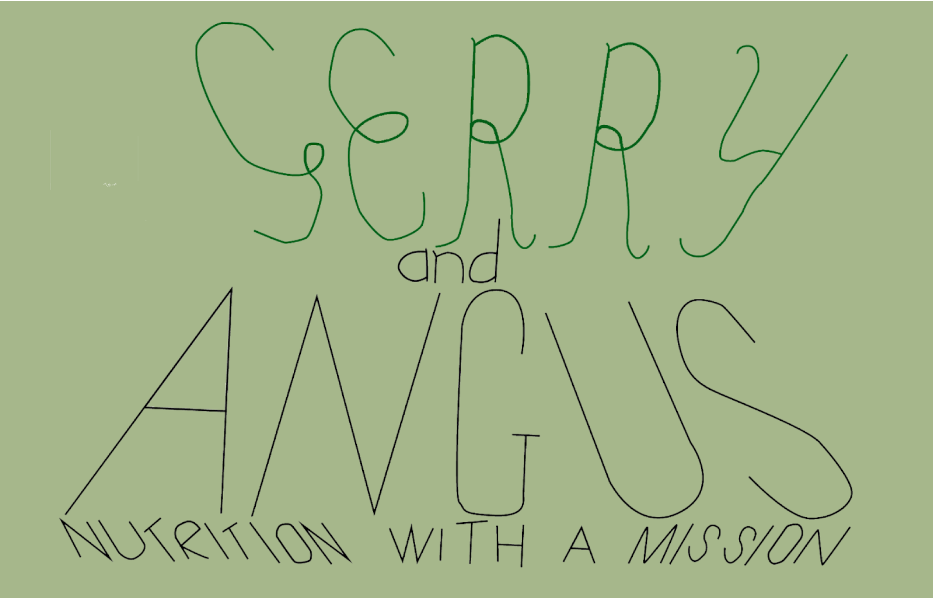 GERRY
and
ANGUS
NUTRITION WITH A MISSION